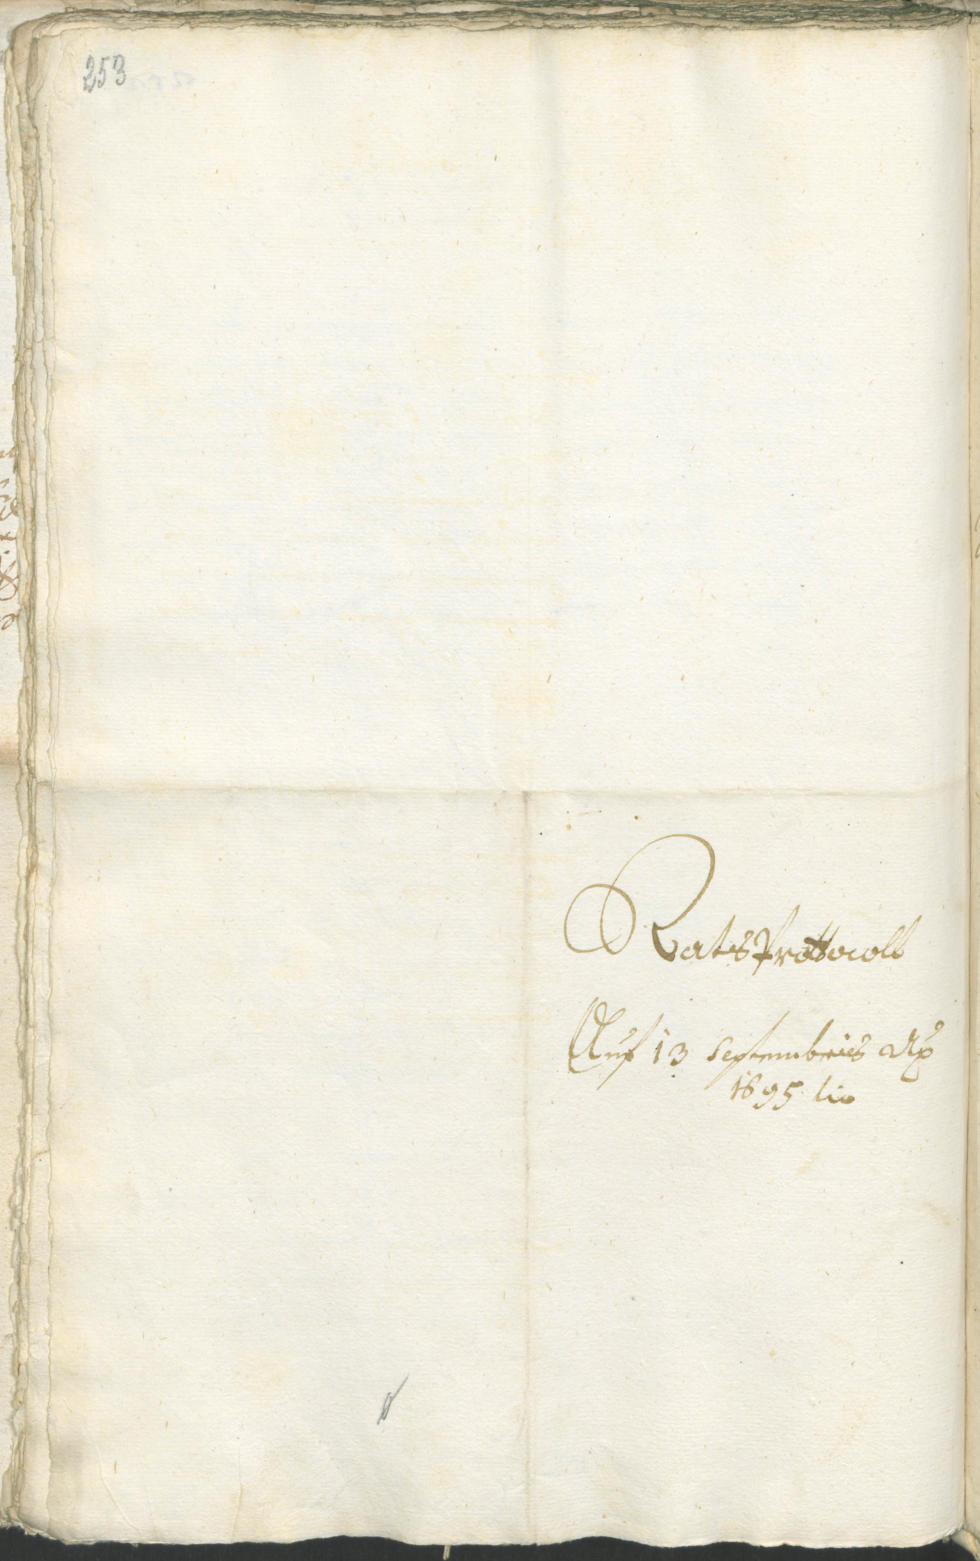 253
RatsProttocoll
Auf 13 Septembris
1695